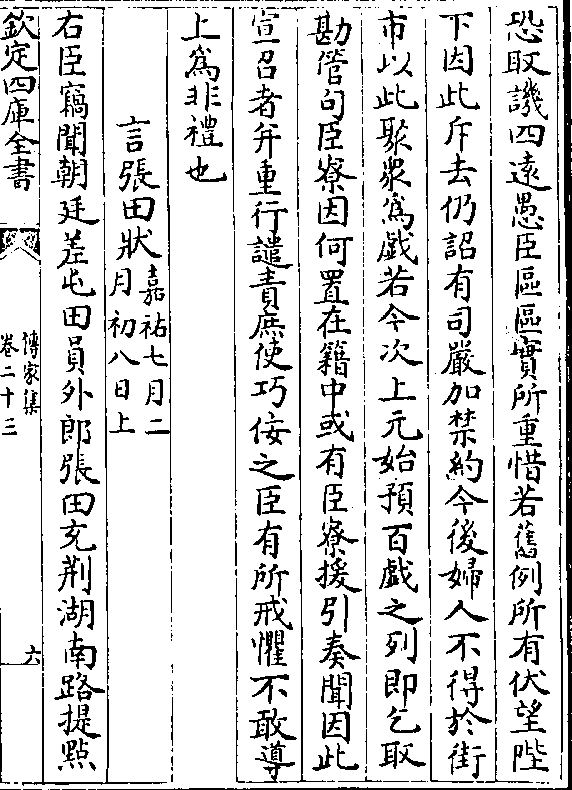 恐取譏四遠愚臣區區實所重惜若舊例所有伏望陛
下因此斥去仍詔有司嚴加禁約今後婦人不得於街
市以此聚衆爲戲若今次上元始預百戲之列即乞取
勘管句臣寮因何置在籍中或有臣寮援引奏聞因此
宣召者并重行譴責庶使巧佞之臣有所戒懼不敢導
上爲非禮也
言張田狀嘉祐七月二
月初八日上
右臣竊聞朝廷差屯田員外郎張田充荆湖南路提點
欽定四庫全書
傳家集
卷二十三
六